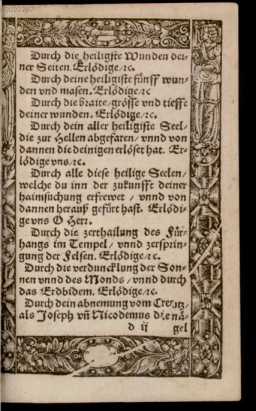 Durch die heiligste Wunden dei-
ner Seiten. Erlödige/ꝛc.
Durch deine heiligiste fünff wun-
den vnd masen. Erlödige/ꝛc
Durch die braite/grösse vnd tieffe
deiner wunden. Erlödige/ꝛc.
Durch dein aller heiligiste Seel/
die zur Hellen abgefaren/ vnnd von
dannen die deinigen erlöset hat. Er-
lödige vns/ꝛc.
Durch alle diese heilige Seelen/
welche du inn der zukunfft deiner
haimsuchung erfrewet / vnnd von
dannen herauß gefürt hast. Erlödi-
ge vns O Herr.
Durch die zerthailung des Für-
hangs im Tempel/ vnnd zersprin-
gung der Felsen. Erlödige/ꝛc.
Durch die verduncklung der Son-
nen vnnd des Monds/ vnnd durch
das Erdbidem. Erlödige/ꝛc.
Durch dein abnemung vom Creutz/
als Joseph vñ Nicodemus die nä-
d ij gel